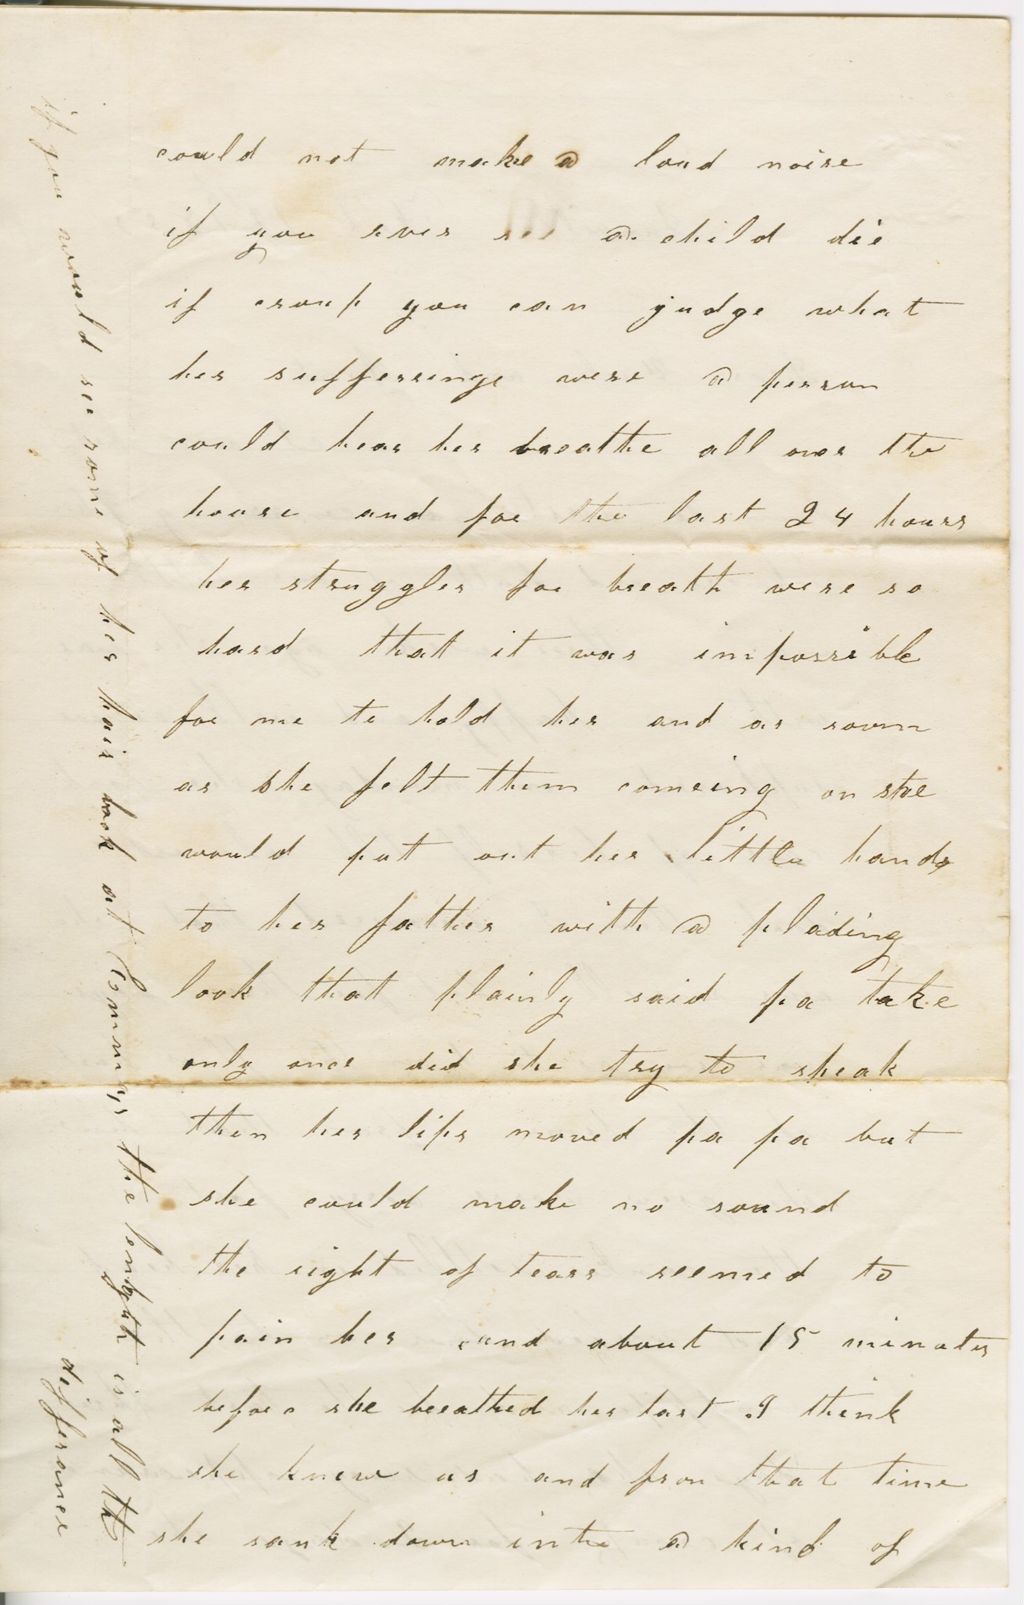 could not make a loud noise
if you ever see a child die
if croup you can judge what
her sufferings were a person
could hear her breathe all over the
house and for the last 24 hours
her struggles for breath were so
hard that it was impossible
for me to hold her and as soon
as she felt them comeing on she
would put out her little hands
to her father with a plading
look that plainly said pa take
only once did she try to speak
then her lips moved pa pa but
she could make no sound
the sight of tears seemed to
pain her and about 15 minutes
before she breathed her last I think
she knew us and from that time
she sank down into a kind of
if you would see some of her hair look at Emmys the lenghth is all the
differance